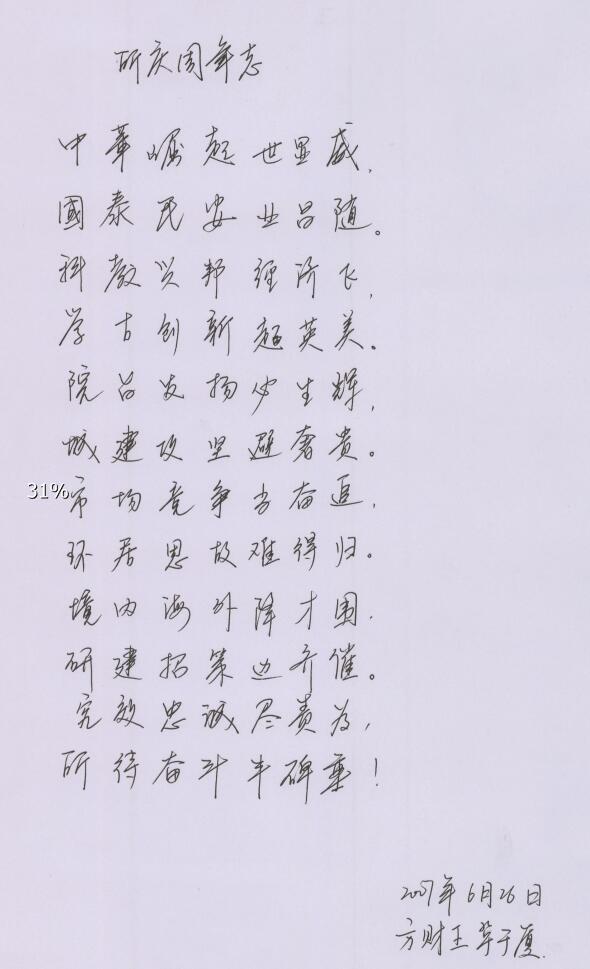 所庆周年志
中華崛起世显盛,
國泰民安业吕随。
科教兴邦经济飞,
学古创新超英美。
院吕发扬必生辉,
城建攻坚避奢贵。
31%
市场竞争当奋追,
环居思故难得归。
境内海外降才围.
研建招策边齐催。
究效忠诚尽责为,
所待奋斗丰碑垂!
2007年6月26日
方财王 华于厦.